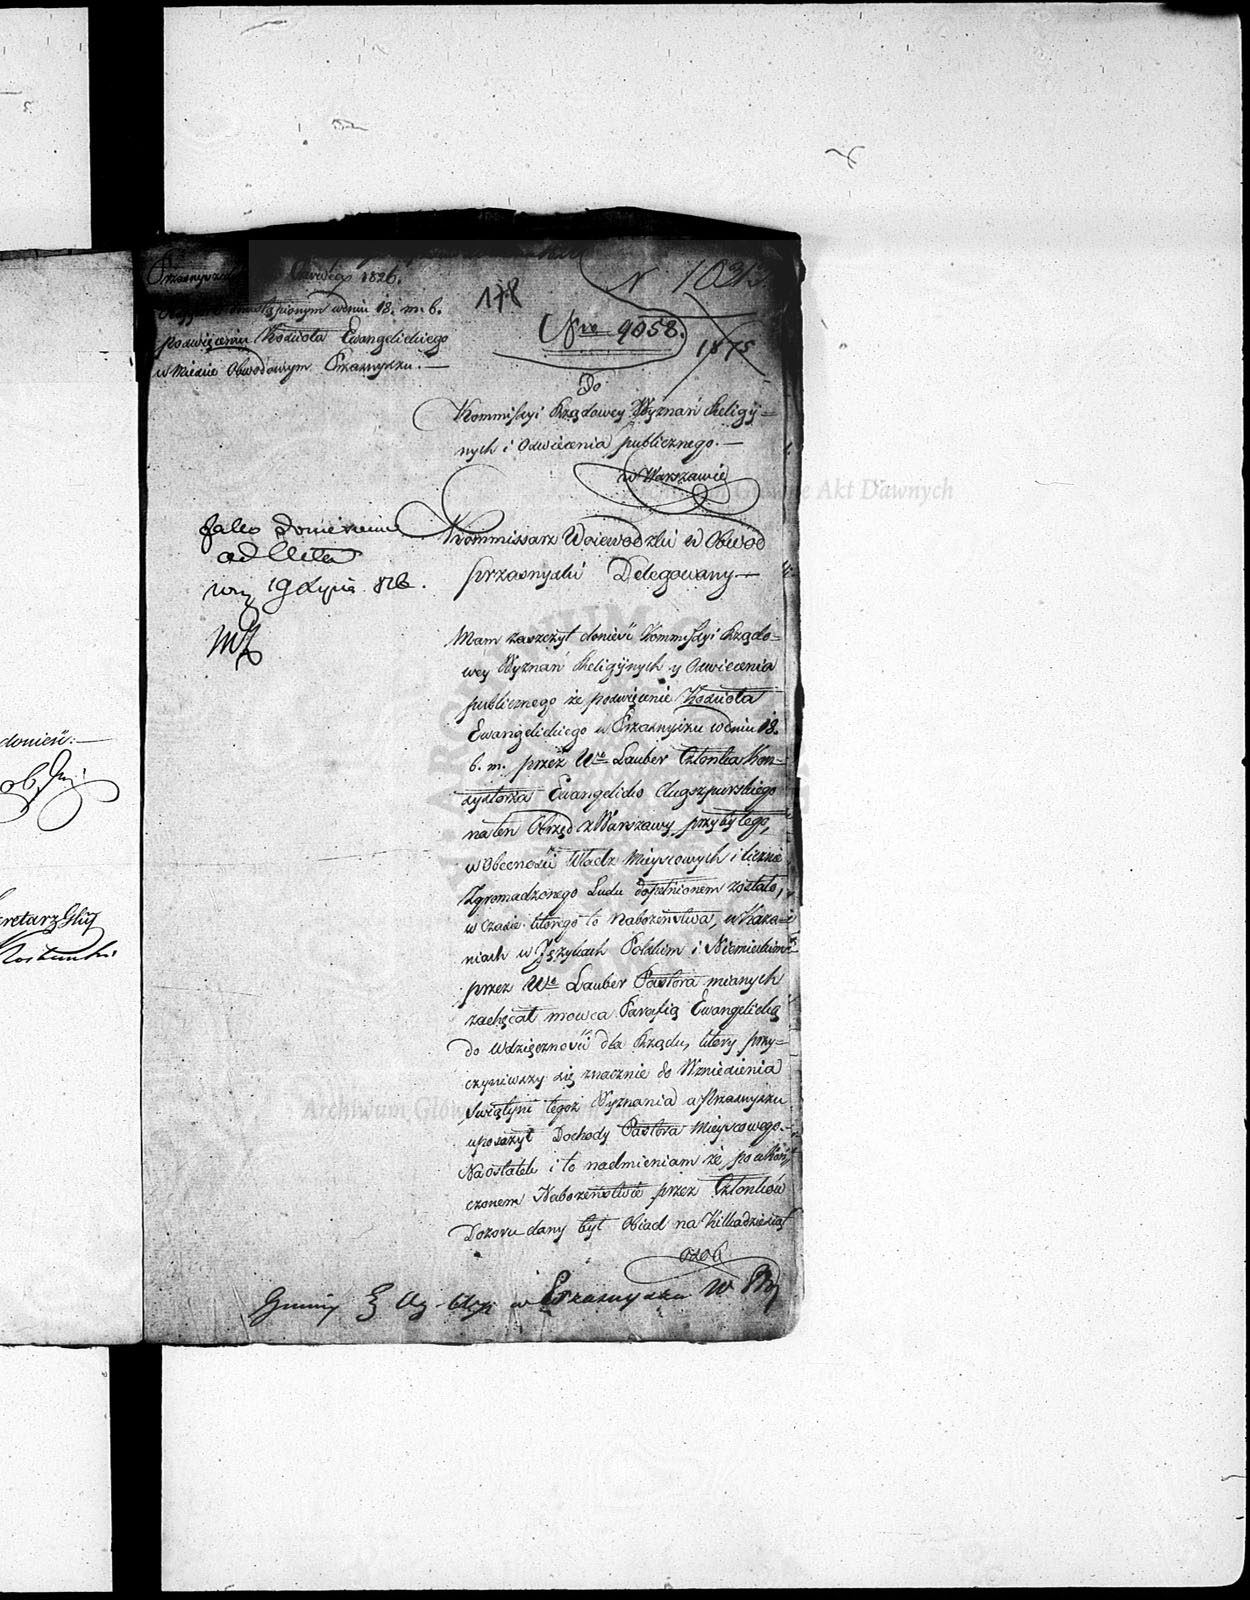 Czerwca 1826.
178
N 10313
Nro 9058.
1875
nastąpionym wdniu 18. m. b.
poświęceniu Kościoła Ewangelickiego
w Mieście Obwodowym Przasnyszu. —
Do
Kommissyi Rządowey Wyznań Religiy-
nych i Oświecenia publicznego. —
w Warszawie
Jako doniesienie
ad Acta
19 Lipca 826.
Kommissarz Woiewodzki w Obwod
przasnyski Delegowany —
Mam zaszczyt donieść Kommissyi Rządo-
wey Wyznań Religiynych y Oswiecenia
publicznego że poswięcenie Kościoła
Ewangelickiego w Przasnyszu wdniu 18.
b. m. przez Wo Lauber Członka Kon-
systorza Ewangelicko Augszpurskiego
na ten Obrzęd z Warszawy przybyłego,
w Obecności Władz Mieyscowych i licznie
Zgromadzonego Ludu dopełnionem zostało,
w Czasie którego to Nabożeństwa, w Kaza-
niach w Językach Polskim i Niemieckim
przez Wo Lauber Pastora mianych
zachęcał mowca Parafią Ewangelicką
do wdzięczności dla Rządu, który przy-
czyniwszy się znacznie do Wzniesienia
Swiątyni tegoż Wyznania w Przasnyszu
uposażył Dochody Pastora Mieyscowego. —
Na ostatek i to nadmieniam że po ukoń-
czonem Nabożeństwie przez Członków
Dozoru dany był Obiad na Kilkadziesiąt
osob
Gminy E Ag w Przasnyszu
donieść: —
Archiwum Główne Akt Dawnych